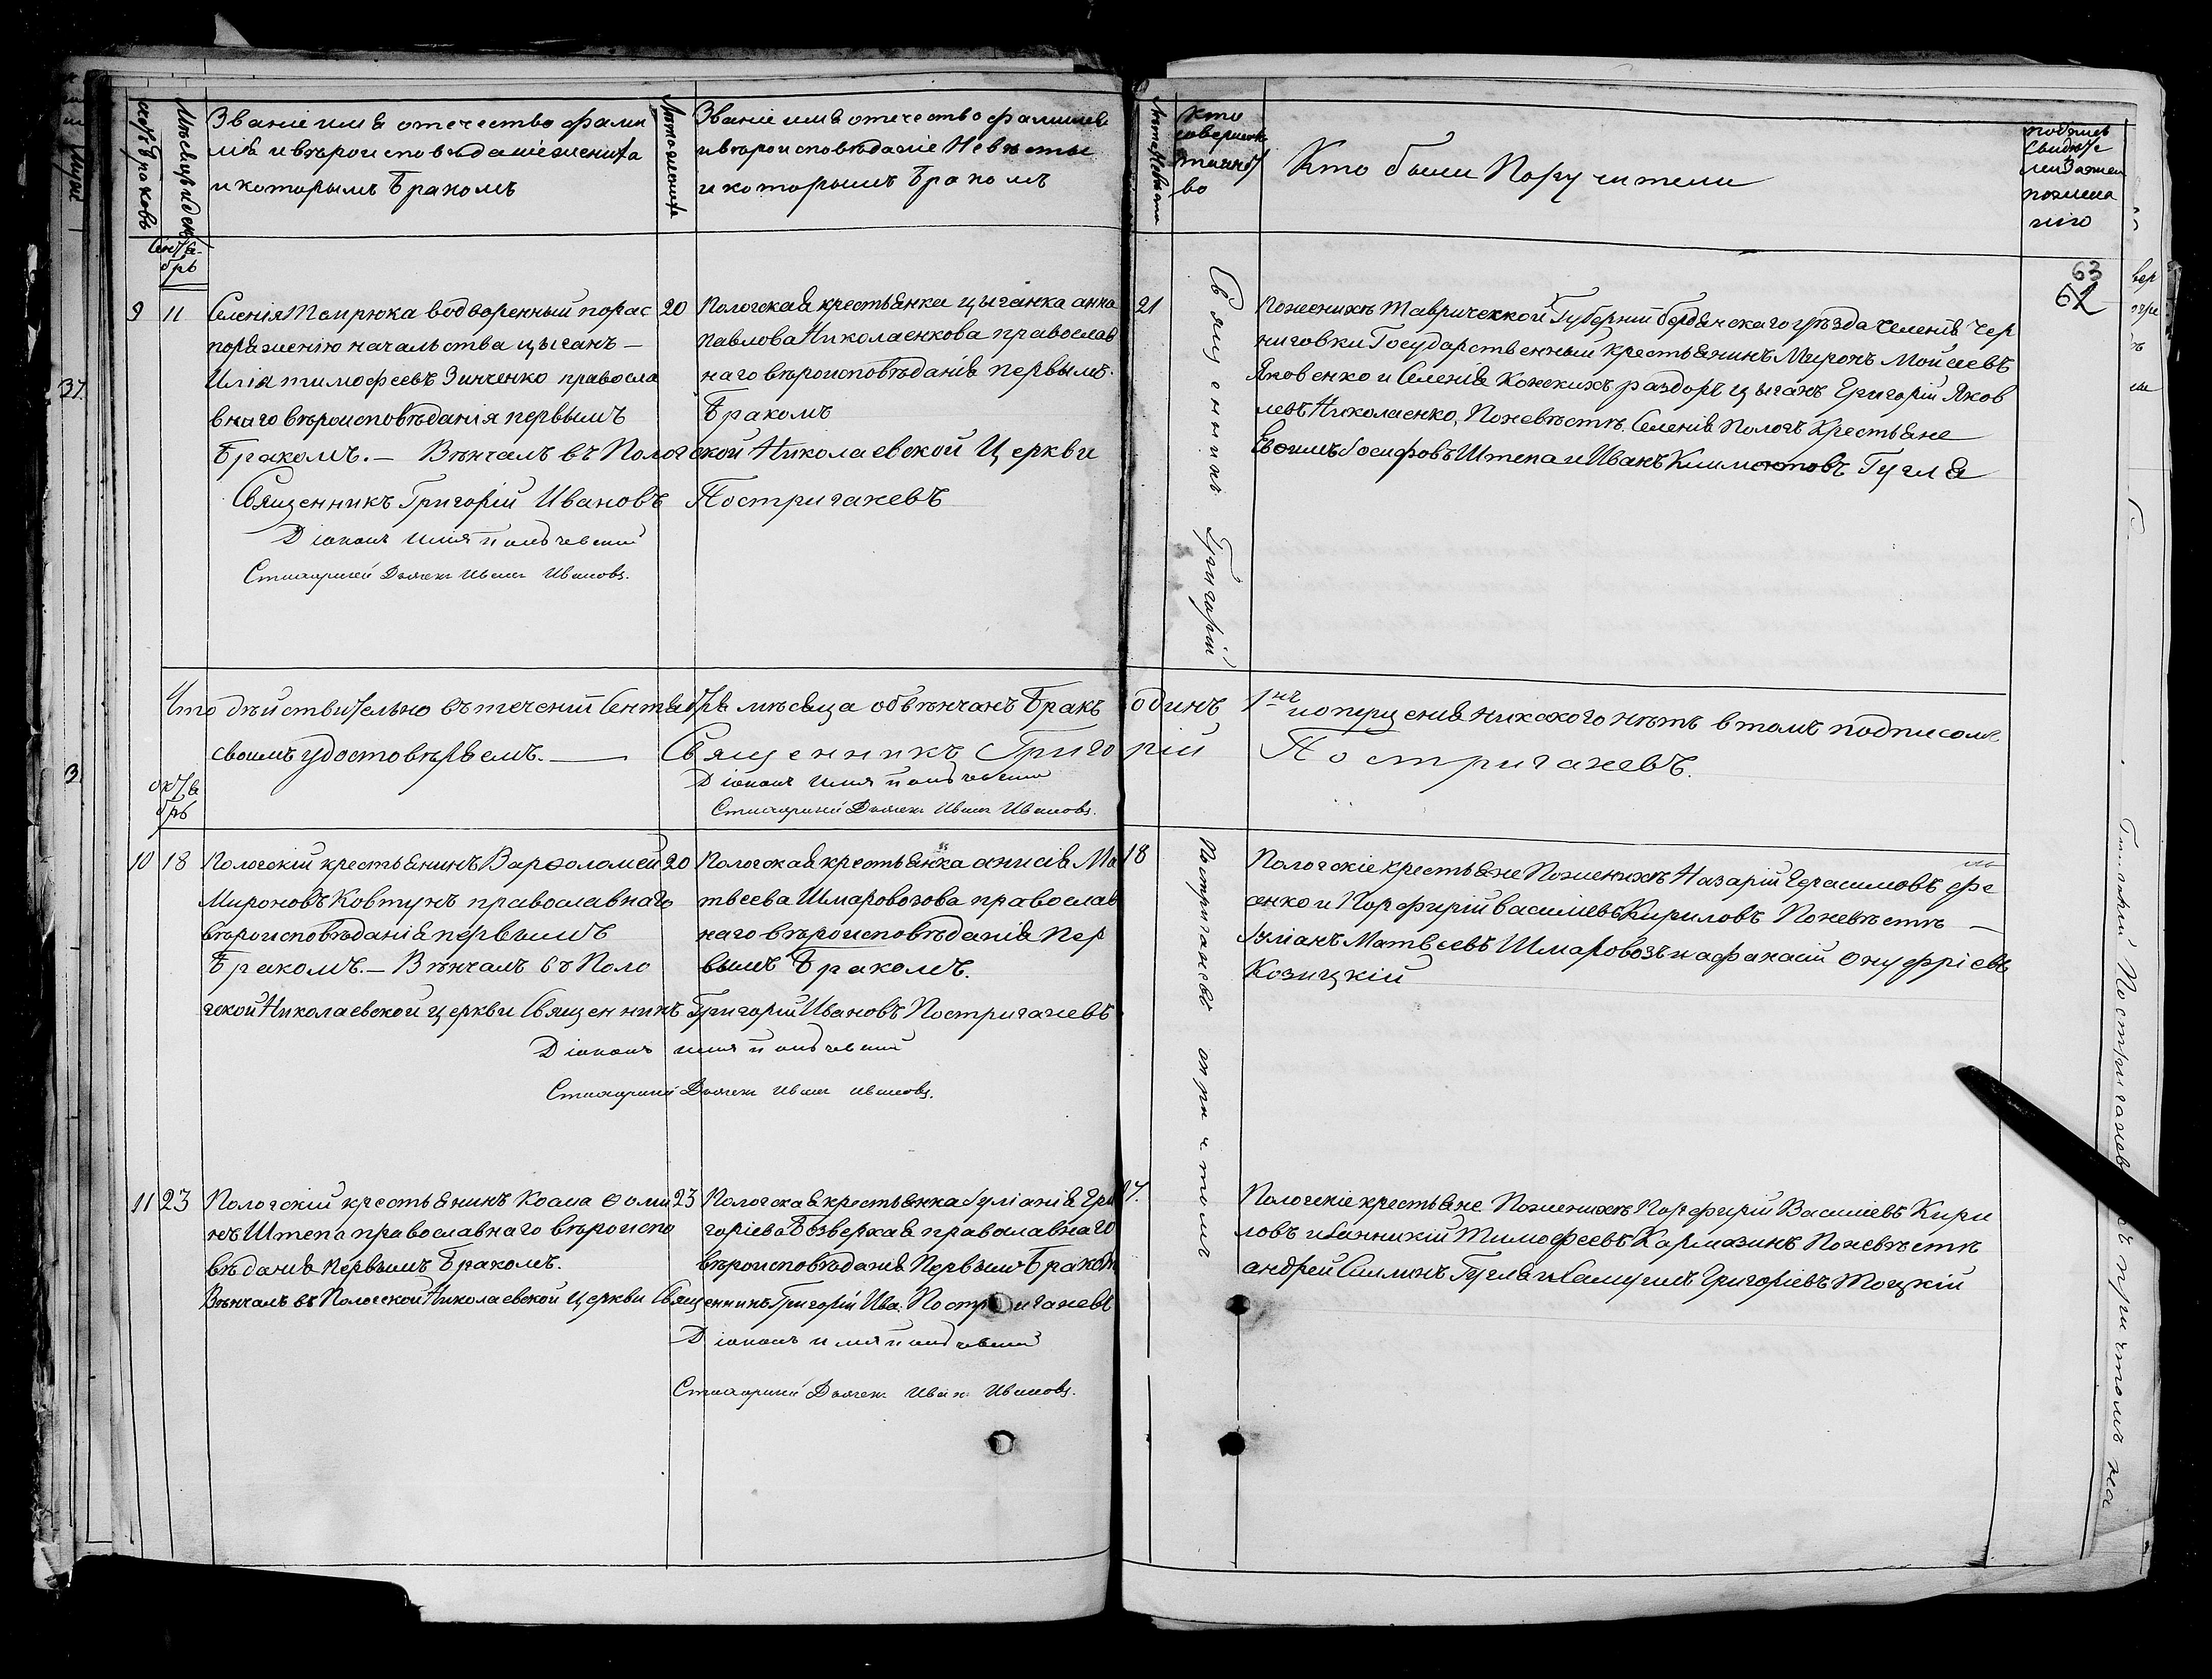 Счетъ браковъ
Мѣсяцъ и день
Званіе имя отечество фами
лія и вѣроисповѣданіе жениха
и которымъ бракомъ
Лѣта жениха
Званіе имя отечество фамилія
и вѣроисповѣданіе Невѣсты
и которымъ бракомъ
Лѣта Невѣсты
Кто
совершалъ
таинст
во
Кто были Поручители
подпись
свидѣте
лей
пожела
нію
63
62
Сентя
брь
9 11
Селенія Темрюка водворенный порас
поряженію начальства цыганъ —
Илія тимофеевъ Зинченко правосла
внаго вѣроисповѣданія первымъ
бракомъ. — Вѣнчалъ въ Пологской Николаевской Церкви
Священникъ Григорій Ивановъ Постригачевъ
Діаконъ Илія
Стихарный Дьячекъ Иванъ Ивановъ.
20
Пологская крестьянка цыганка анна
павлова Николаенкова православ
наго вѣроисповѣданія первымъ
бракомъ
21
Священникъ Григорій
Поженихѣ Таврической Губерніи бердянскаго уѣзда селенія Чер
ниговки Государственный крестьянинъ Миронъ Мойсеевъ
Яковенко и Селенія Конскихъ раздоръ цыганъ Григорій Яков
левъ Николаенко, Поневѣстѣ Селенія Пологъ Крестьяне
Евфимъ Іосифовъ Штепа и Иванъ Климентовъ Гугля
Что дѣйствительно въ теченіи Сентября мѣсяца обвѣнчанъ бракъ одинъ 1нъ и опущенія никакого нѣтъ в томъ подписомъ
своимъ удостовѣряемъ. — Священникъ Григорій Постригачевъ.
Діаконъ Илія
Стихарный Дьячекъ Иванъ Ивановъ.
октя
брь
10 18
Пологскій крестьянинъ Варѳоломей
Мироновъ Ковтунъ православнаго
вѣроисповѣданія первымъ
бракомъ. — Вѣнчалъ въ Поло
гской Николаевской церкви Священникъ Григорій Ивановъ Постригачевъ
Діаконъ Илія
Стихарный Дьячекъ Иванъ Ивановъ.
20
Пологская крестьянка анисія Ма
твеева Шмаровозова православ
наго вѣроисповѣданія пер
вымъ бракомъ.
18
Постригачевъ съ причтомъ
Пологскіе крестьяне Поженихѣ Назарій Герасимовъ
енко и Порфирій васильевъ Кириловъ Поневѣстѣ —
Іуліанъ Матвѣевъ Шмаровозъ и афанасій Онуфріевъ
Козицкій
11 23
Пологскій крестьянинъ Косма Ѳоми
нъ Штепа православнаго вѣроиспо
вѣданія первымъ бракомъ.
Вѣнчалъ въ Пологской Николаевской церкви Священникъ Григорій Ива. Постригачевъ
Діаконъ Илія
Стихарный Дьячекъ Иванъ Ивановъ.
23
Пологская крестьянка Іуліанія Гри
горіева Безверхая православнаго
вѣроисповѣданія Первымъ бракомъ
17.
Пологскіе крестьяне Поженихѣ Порфирій Васильевъ Кири
ловъ и Іанникій Тимофеевъ Кармазинъ Поневѣстѣ
андрей Симинъ Гугля и Самуилъ Григоріевъ Тоцкій
Григорій Постригачевъ съ причтомъ на
37
3